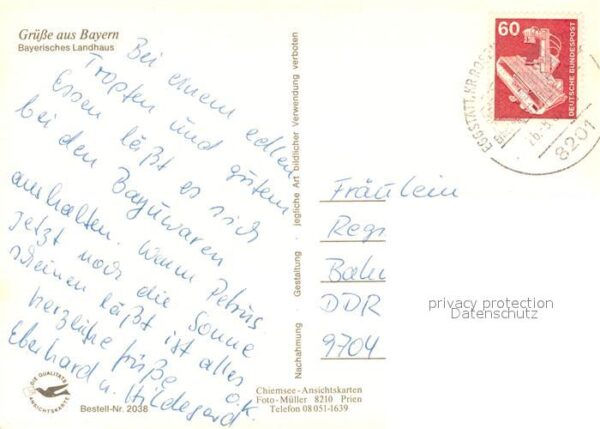 Grüße aus Bayern
Bayerisches Landhaus
Bei einem edlen
Tropfen und gutem
Essen läßt es sich
bei den Bayuwaren
aushalten. Wenn Petrus
jetzt noch die Sonne
scheinen läßt ist alles
o.k.
herzliche Grüße
Eberhard u. Hildegard
DIE QUALITÄTS
ANSICHTSKARTE
Bestell-Nr. 2038
Nachahmung - Gestaltung - jegliche Art bildlicher Verwendung verboten
Chiemsee-Ansichtskarten
Foto-Müller 8210 Prien
Telefon 08051-1639
60
DEUTSCHE BUNDESPOST
8201
Fräulein
Regi
Bahn
DDR
9704
privacy protection
Datenschutz